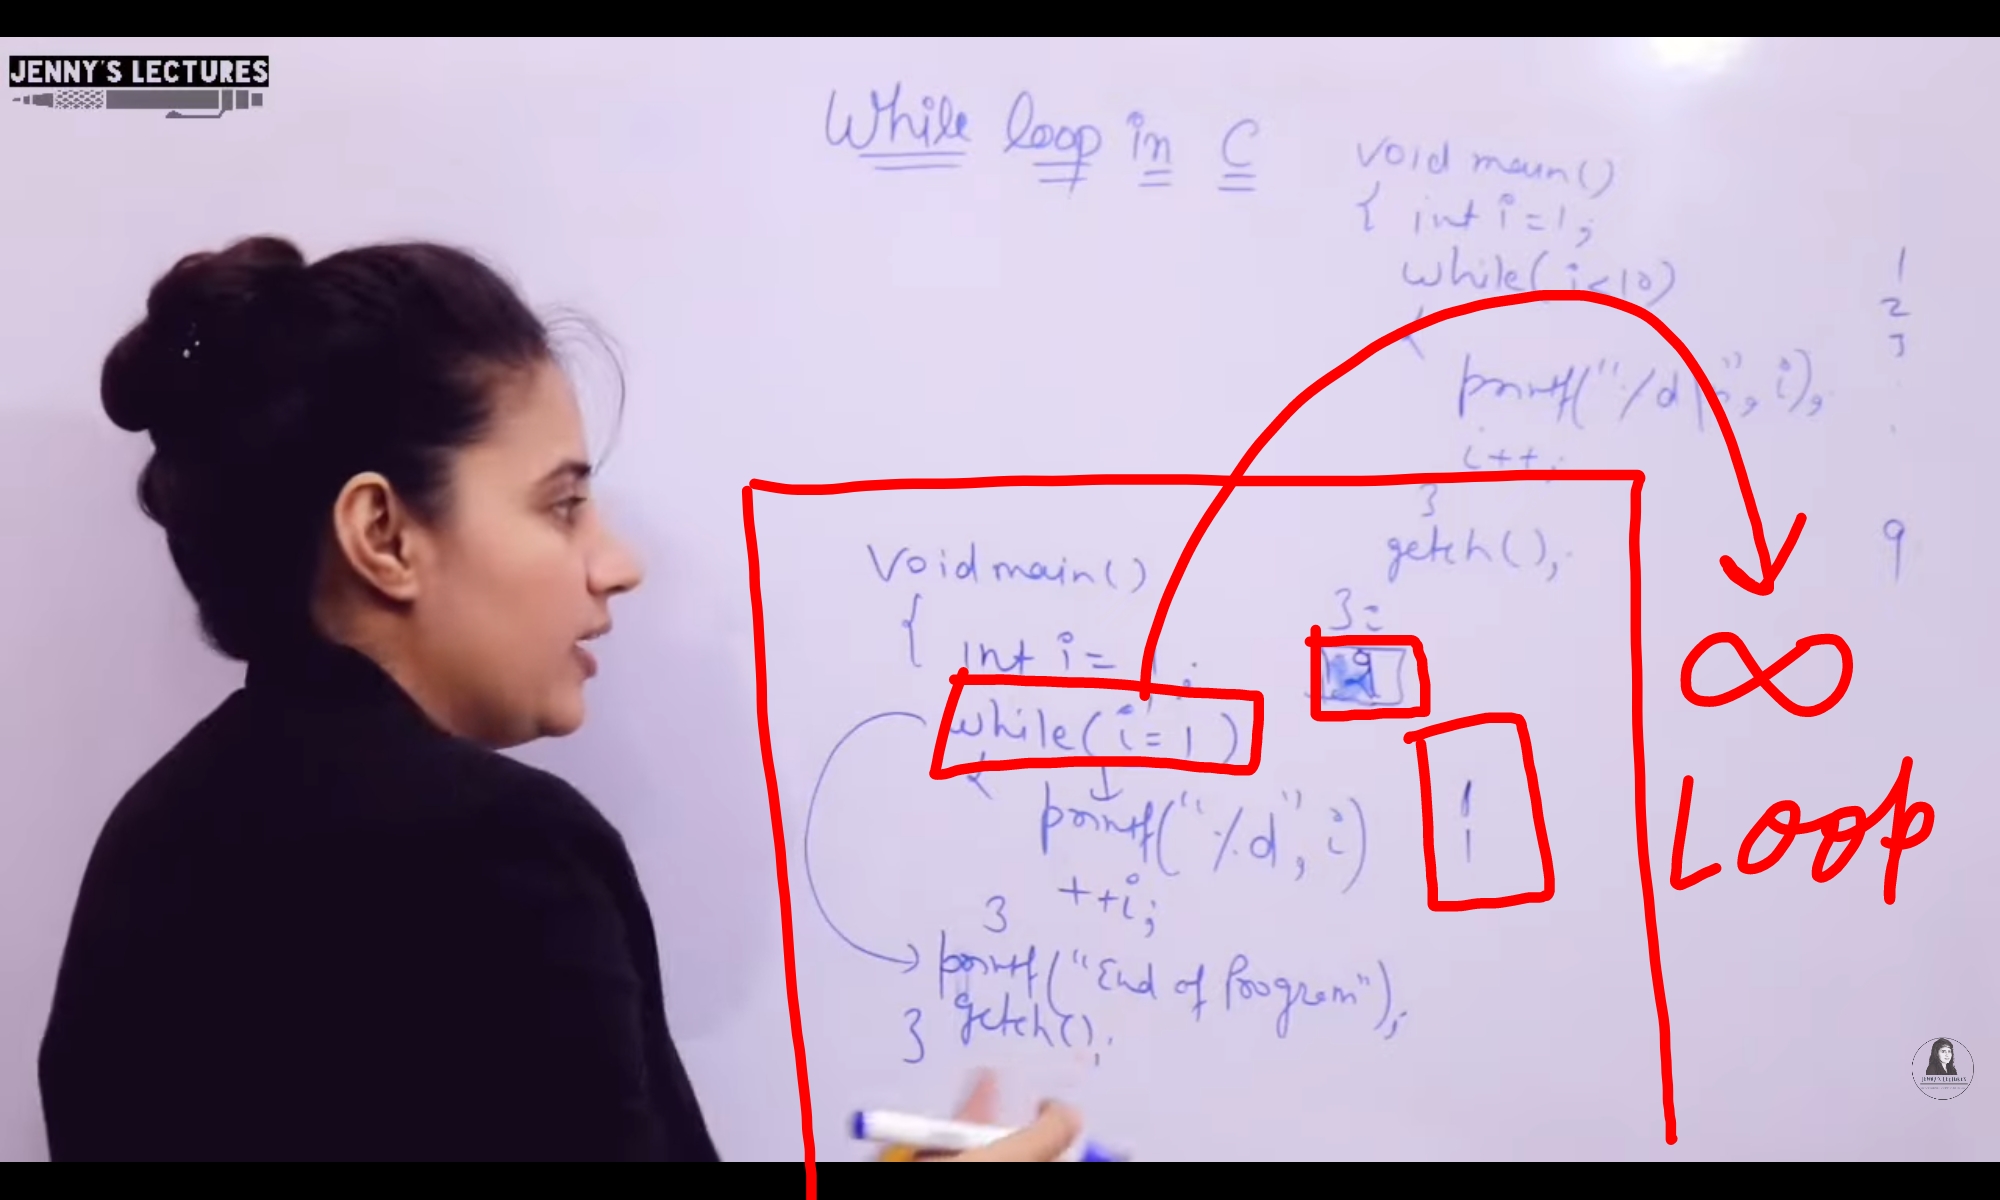 JENNY'S LECTURES
While loop in C
void main()
{ int i=1;
while(i<10)
{
printf("%d\n", i);
i++;
}
getch();
}
1
2
3
.
.
9
void main()
{ int i= 1;
while(i=1)
{
printf("%d", i)
++i;
}
printf("End of Program");
getch();
}
1
1
∞
Loop
JENNY'S LECTURES